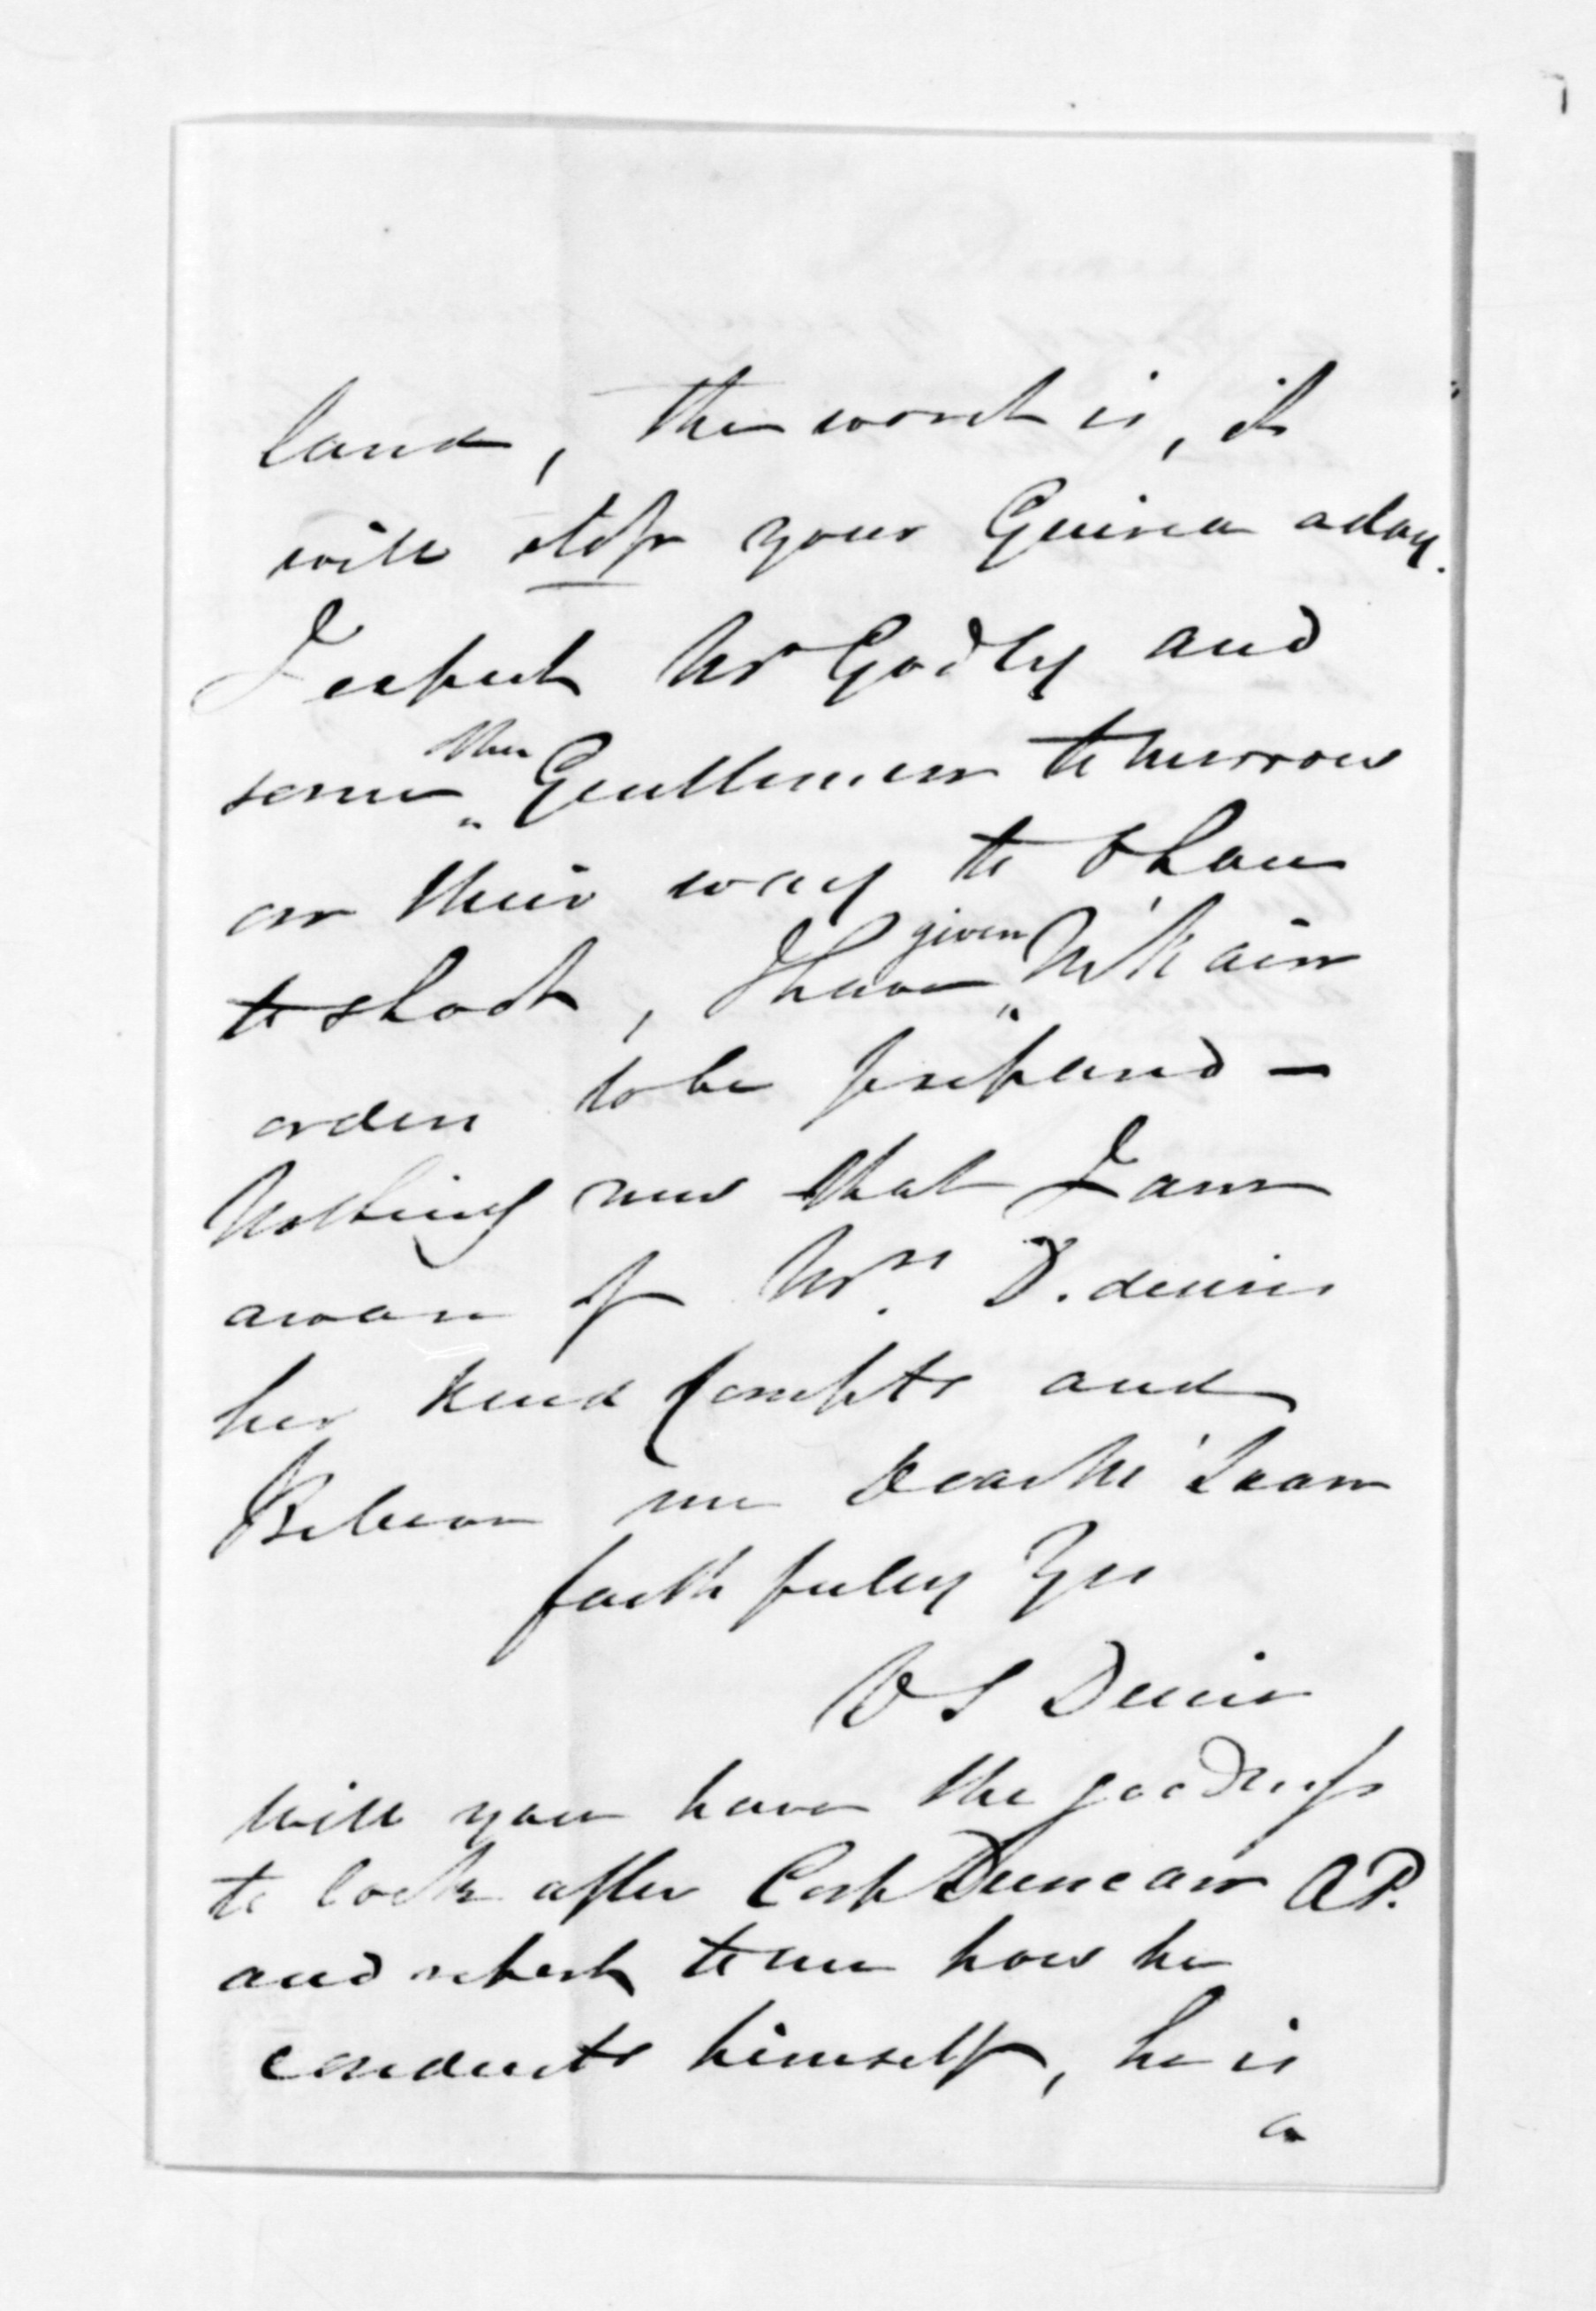 land, the worst is, it
will stop your Guinea a day.
I expect Mr Godly and
some other Gentlemen to morrow
on their way to Ohau
to shoot, I have given McKain
orders to be prepared —
Nothing new that I am
aware of Mrs. D. desires
her kind Compts and
Believe me dear McLean
faithfully Yrs
Will you have the goodness
to look after Corp Duncan A.P.
and report to me how he
conducts himself, he is
a